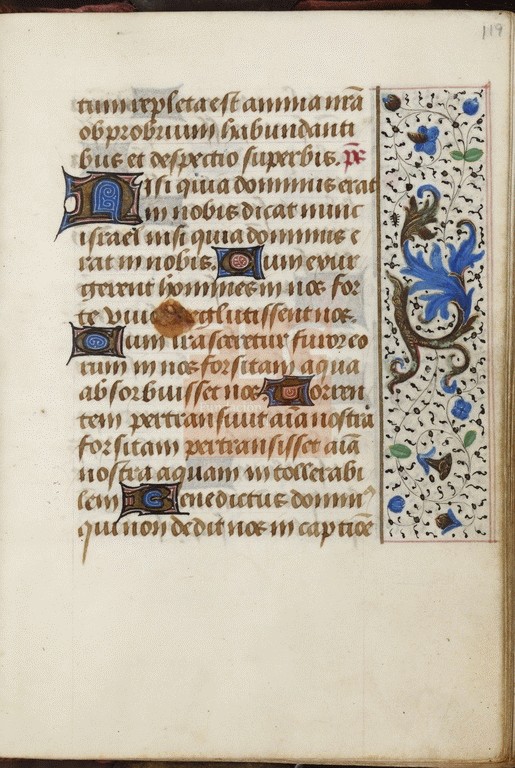 119
tum repleta est anima nr̄a
obprobrium habundanti
bus et despectio superbis. ps̄
Nisi quia dominus erat
in nobis dicat nunc
israel nisi quia dominus e
rat in nobis. Cum exur
gerent homines in nos for
te vivos deglutissent nos.
Cum irasceretur furor eo
rum in nos forsitam aqua
absorbuisset nos. Torren
tem pertransivit aīa nostra
forsitam pertransisset aīa
nostra aquam intollerabi
lem Benedictus domin⁹
qui non dedit nos in captiōē